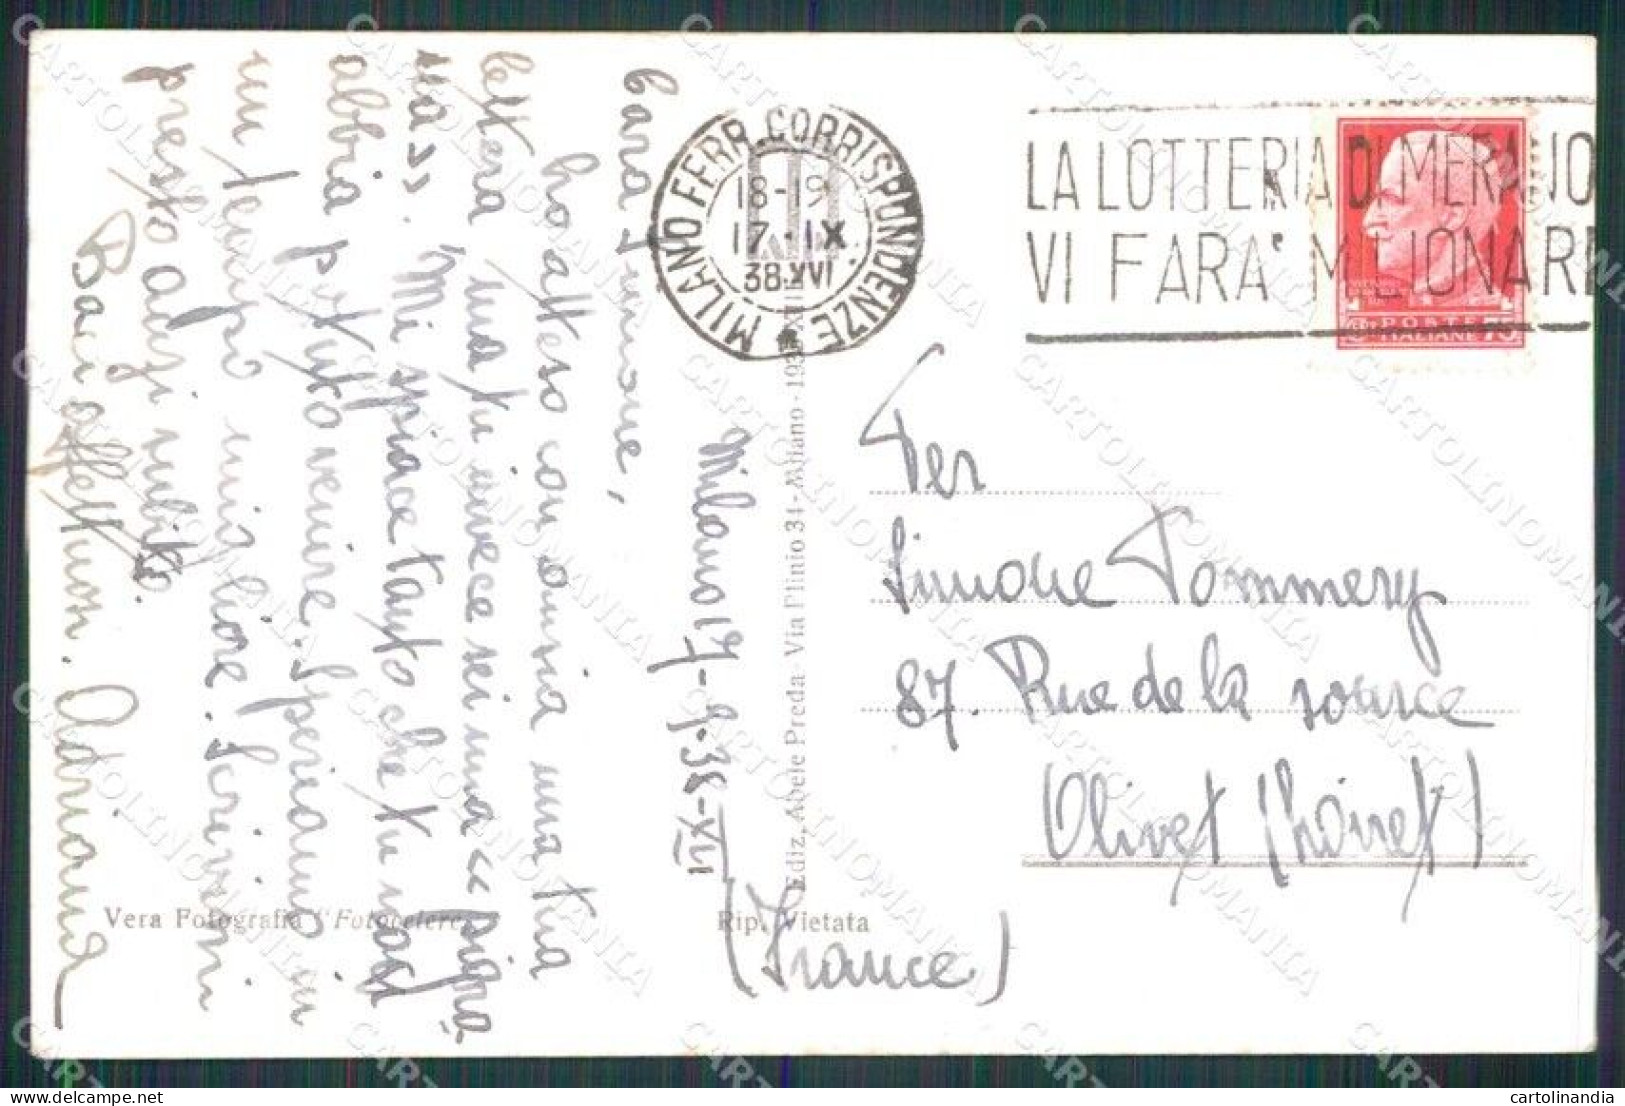 Milano 17-9-38-XVI
Cara Simone,
ho atteso con ansia una tua
lettera ma tu invece sei una << pigro-
na >>. Mi spiace tanto che tu non
abbia potuto venire. Speriamo in
un tempo migliore. Scrivimi
presto anzi subito.
Baci affettuosi. Adriana
Vera Fotografia "Fotocelere"
Rip. Vietata
Ediz. Abele Preda - Via Plinio 31 - Milano - 193
MILANO FERR. CORRISPONDENZE
18-19
17·IX
38·XVI
LA LOTTERIA DI MERANO
VI FARA' MILIONARI
POSTE
ITALIANE 75
Per
Simone Pommery
87. Rue de la source
Olivet (Loiret)
(France)
CARTOLINOMANIA
cartolinandia